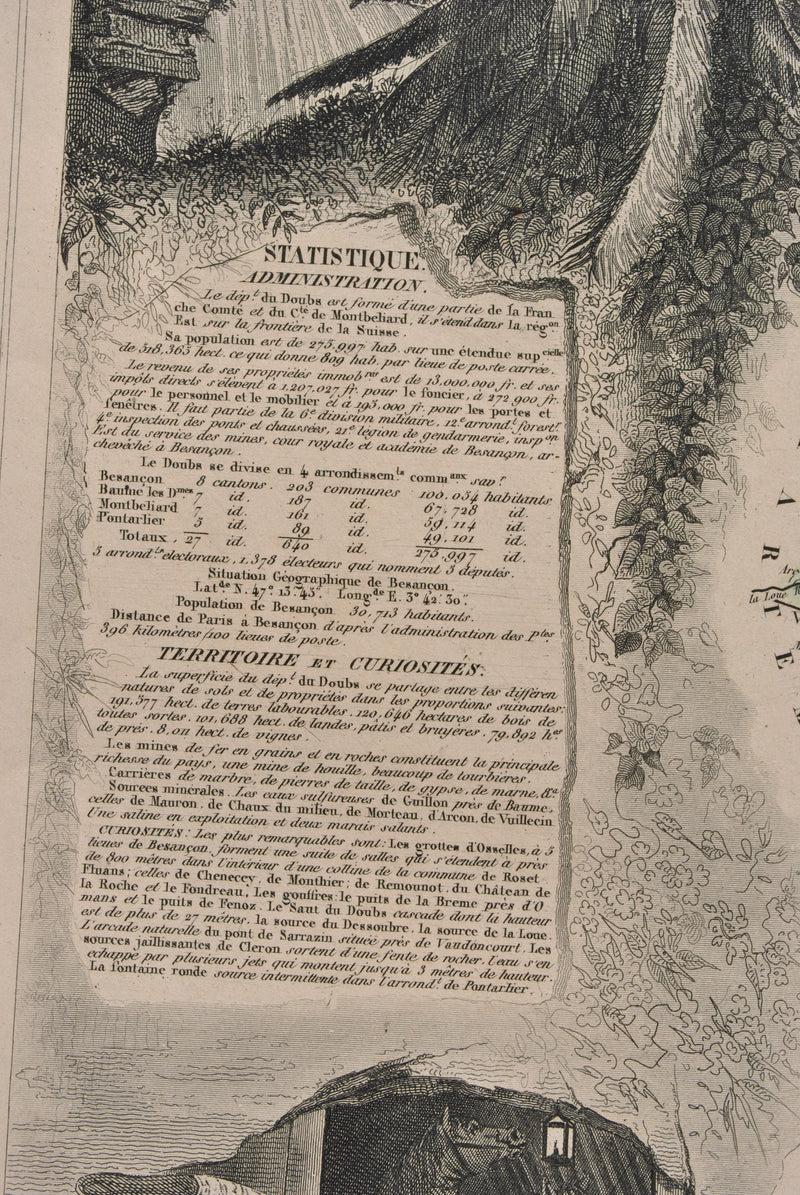 STATISTIQUE.
ADMINISTRATION.
Le dép.t du Doubs est formé d'une partie de la Fran
che Comté et du C.té de Montbeliard, il s'étend dans la rég.on
Est sur la frontière de la Suisse.
Sa population est de 275,997 hab. sur une étendue sup.cielle
de 518,363 hect. ce qui donne 809 hab. par lieue de poste carrée.
Le revenu de ses propriétés immob.res est de 13,000,000 fr. et ses
impôts directs s'élèvent à 1,207,027 fr. pour le foncier, à 272,900 fr.
pour le personnel et le mobilier et à 193,000 fr. pour les portes et
fenêtres. Il fait partie de la 6.e division militaire, 12.e arrond.t forest.r
4.e inspection des ponts et chaussées, 21.e légion de gendarmerie, insp.on
Est du service des mines, cour royale et académie de Besançon, ar-
chevêché à Besançon.
Le Doubs se divise en 4 arrondissem.ts comm.aux sav.r
Besançon 8 cantons. 203 communes 100,054 habitants
Baume les D.mes 7 id. 187 id. 67,728 id.
Montbeliard 7 id. 161 id. 59,114 id.
Pontarlier 5 id. 89 id. 49,101 id.
Totaux, 27 id. 640 id. 275,997 id.
5 arrond.ts électoraux, 1,378 électeurs qui nomment 5 députés.
Situation Géographique de Besançon.
Lat.de N. 47.° 13.' 45." Long.de E. 3° 42.' 30."
Population de Besançon 30,713 habitants.
Distance de Paris à Besançon d'après l'administration des P.tes
396 kilomètres/100 lieues de poste.
TERRITOIRE ET CURIOSITÉS.
La superficie du dép.t du Doubs se partage entre les différen
natures de sols et de propriétés dans les proportions suivantes:
191,577 hect. de terres labourables. 120,646 hectares de bois de
toutes sortes. 101,688 hect. de landes, patis et bruyères. 79,892 h.es
de prés. 8,011 hect. de vignes.
Les mines de fer en grains et en roches constituent la principale
richesse du pays, une mine de houille, beaucoup de tourbières.
Carrières de marbre, de pierres de taille, de gypse, de marne, &.a
Sources minérales. Les eaux sulfureuses de Guillon près de Baume,
celles de Mauron, de Chaux du milieu, de Morteau, d'Arcon, de Vuillecin
Une saline en exploitation et deux marais salants.
CURIOSITÉS: Les plus remarquables sont: Les grottes d'Osselles, à 5
lieues de Besançon, forment une suite de salles qui s'étendent à près
de 800 mètres dans l'intérieur d'une colline de la commune de Roset
Fluans; celles de Chenecey, de Monthier; de Remounot, du Château de
la Roche et le Fondreau; Les gouffres: le puits de la Breme près d'O
mans et le puits de Fenoz. Le Saut du Doubs cascade dont la hauteur
est de plus de 27 mètres. la source du Dessoubre, la source de la Loue.
L'arcade naturelle du pont de Sarrazin située près de Vaudoncourt. Les
sources jaillissantes de Cleron sortent d'une fente de rocher. L'eau s'en
echappe par plusieurs jets qui montent jusqu'à 3 mètres de hauteur.
La fontaine ronde source intermittente dans l'arrond.t de Pontarlier.
A
R
E
V
E
la Loue